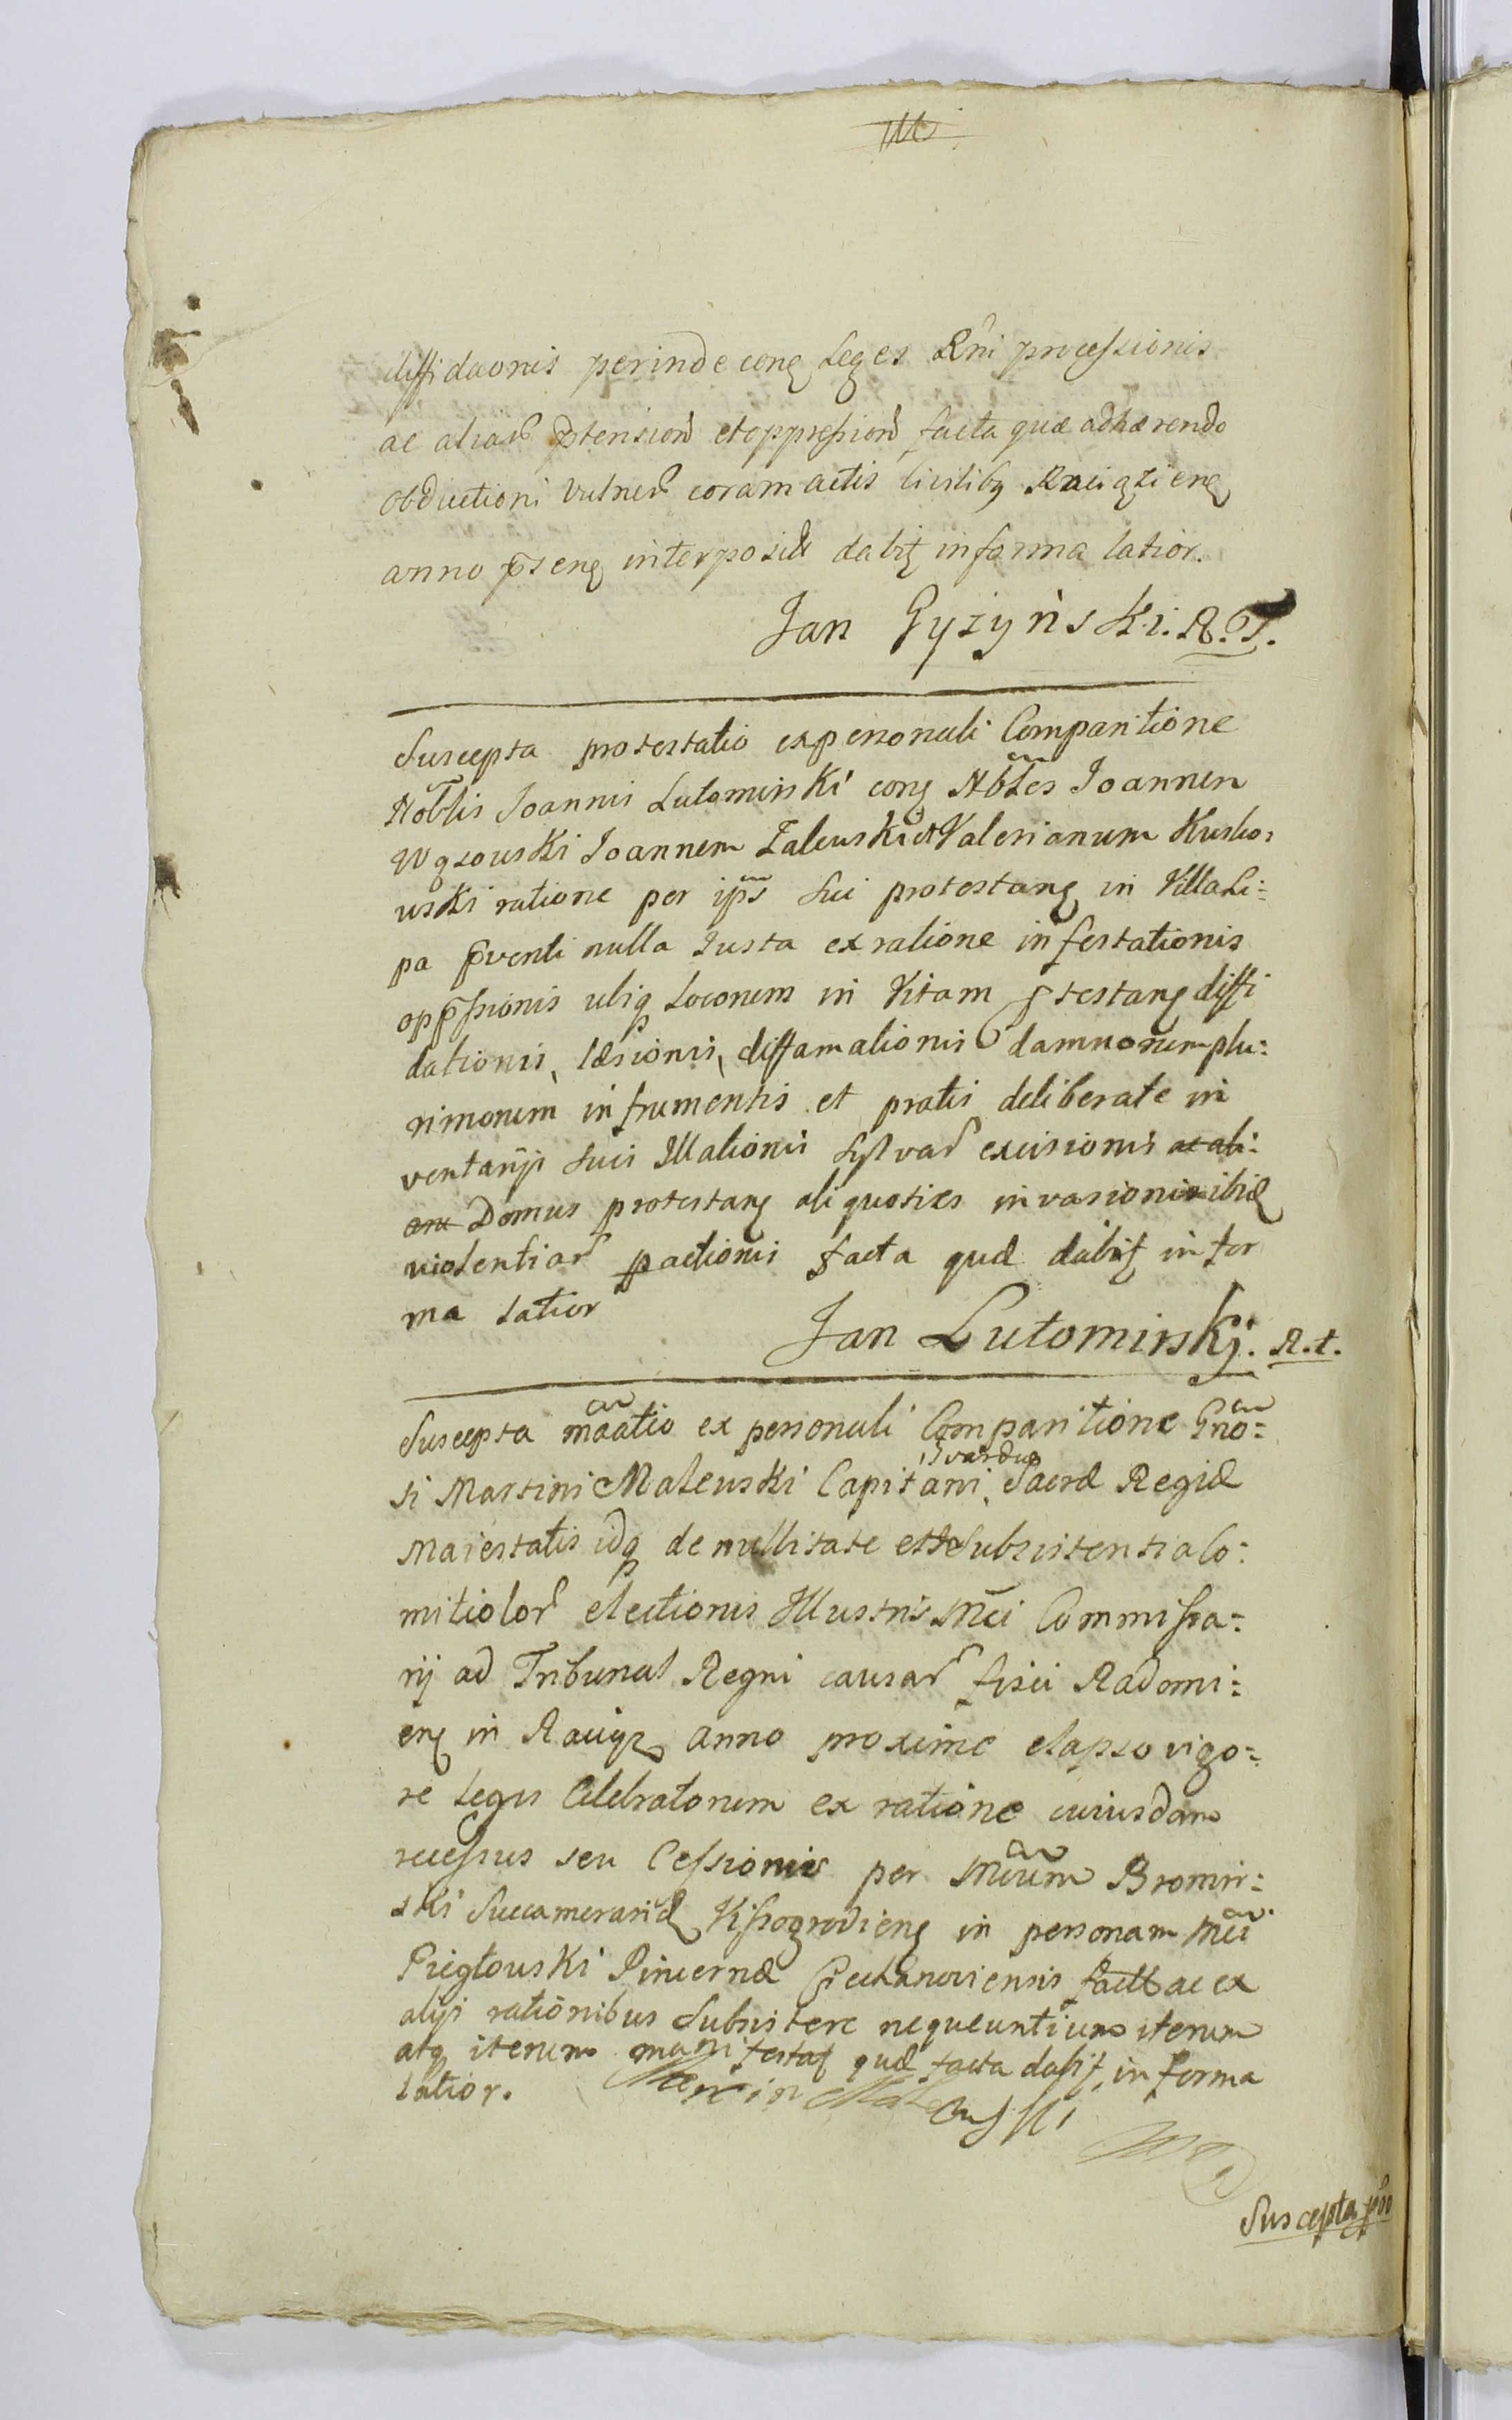 diffidaonis perinde conq Leges Rni processionis
ac aliar ptension et oppression facta quæ adhærendo
obductioni vulner coram actis civilibq Raciązienq
anno psenq interposit dabit in forma latior.
Jan Gyżyński. R. T.
Suscepta protestatio ex personali Comparitione
Nobtis Joannis Lutomirski conq Nbtes Joannem
Wązowski Joannem Zalewski et Valerianum Kusko,
wski ratione per ips sui protestanq in Villa Li:
pa pventi nulla Justa ex ratione infestationis
oppssionis ubiq Locorum in Vitam ptestanq diffi
dationis, læsionis, diffamationis damnorum plu:
rimorum in frumentis et pratis deliberate in
ventarijs suis Illationis sylvar excisionis ac ali:
aru Domus protestanq aliquoties invasionis ibiq
violentiar pactionis facta quæ dabit in for
ma latior
Jan Lutomirskj. R. t.
Suscepta maatio ex personali Comparitione Gno:
si Martini Malewski Capitani Gvardiæ Sacræ Regiæ
Maiestatis idq de nullitate et Subsistentia Co:
mitiolor electionis Illustris Mci Commissa:
rij ad Tribunal Regni causar fisci Radomi:
enq in Raciąz anno proxime elapso vigo:
re Legis Celebratorum ex ratione cuiusdam
recessus seu Cessionis per Mcum Bromir:
ski Succamerariu Vissogrodienq in personam Mci
Pręgłowski Pincernæ Ciechanoviensis factæ ac ex
alijs rationibus Subsistere nequeuntium iterum
atq iterum manifestat quæ facta dabit in forma
latior. Marcin Malewski
Suscepta pro